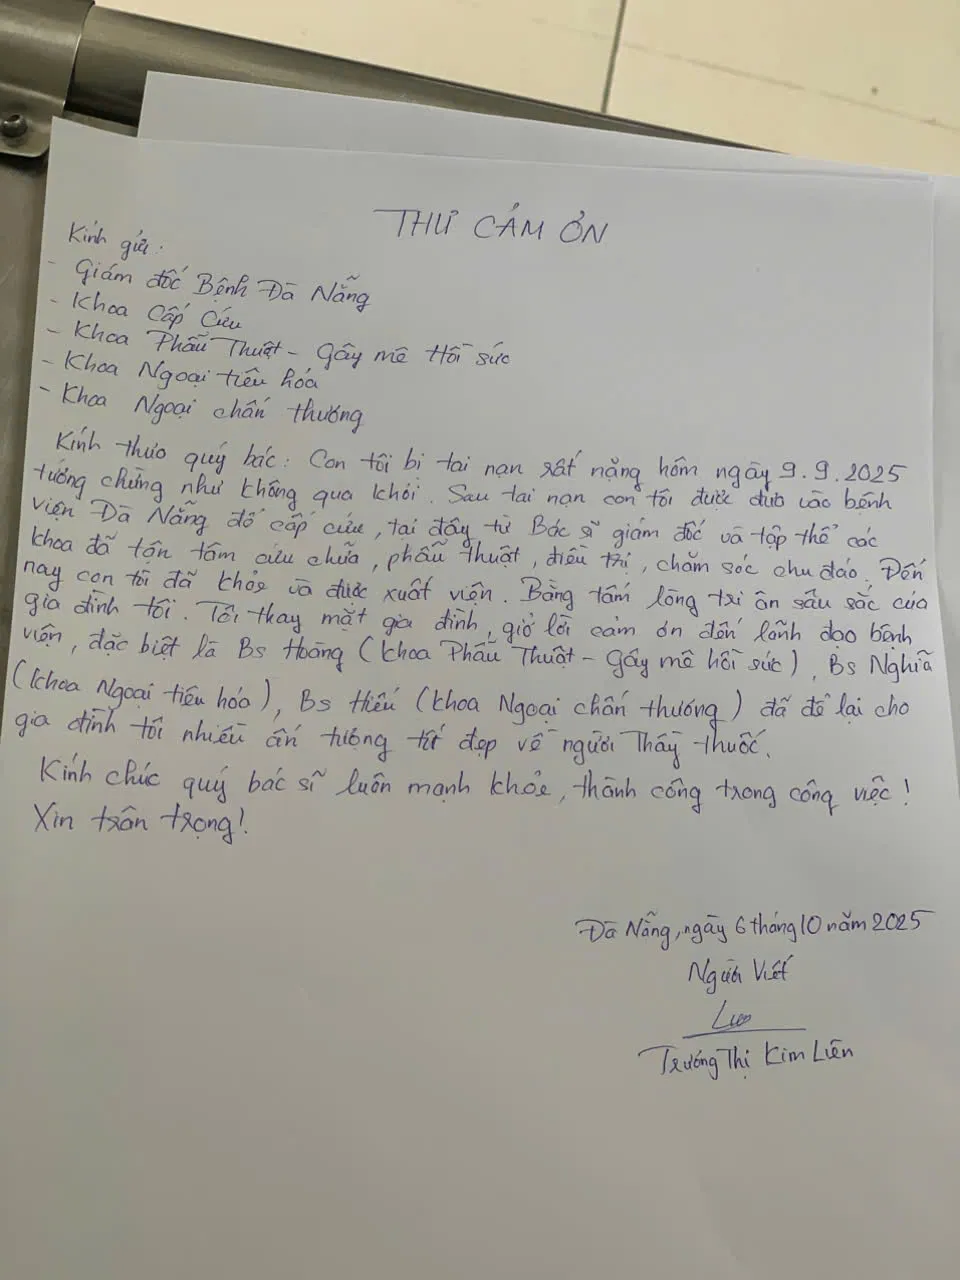 THƯ CẢM ƠN
Kính gửi:
- Giám đốc Bệnh Đà Nẵng
- Khoa Cấp Cứu
- Khoa Phẫu Thuật - Gây mê Hồi sức
- Khoa Ngoại tiêu hóa
- Khoa Ngoại chấn thương
Kính thưa quý bác: Con tôi bị tai nạn rất nặng hôm ngày 9.9.2025
tưởng chừng như không qua khỏi. Sau tai nạn con tôi được đưa vào bệnh
viện Đà Nẵng để cấp cứu, tại đây từ Bác sĩ giám đốc và tập thể các
khoa đã tận tâm cứu chữa, phẫu thuật, điều trị, chăm sóc chu đáo. Đến
nay con tôi đã khỏe và được xuất viện. Bằng tấm lòng tri ân sâu sắc của
gia đình tôi. Tôi thay mặt gia đình, gởi lời cảm ơn đến lãnh đạo bệnh
viện, đặc biệt là Bs Hoàng (khoa Phẫu Thuật - Gây mê hồi sức), Bs Nghĩa
(khoa Ngoại tiêu hóa), Bs Hiếu (khoa Ngoại chấn thương) đã để lại cho
gia đình tôi nhiều ấn tượng tốt đẹp về người Thầy thuốc.
Kính chúc quý bác sĩ luôn mạnh khỏe, thành công trong công việc!
Xin trân trọng!
Đà Nẵng, ngày 6 tháng 10 năm 2025
Người Viết
Trương Thị Kim Liên